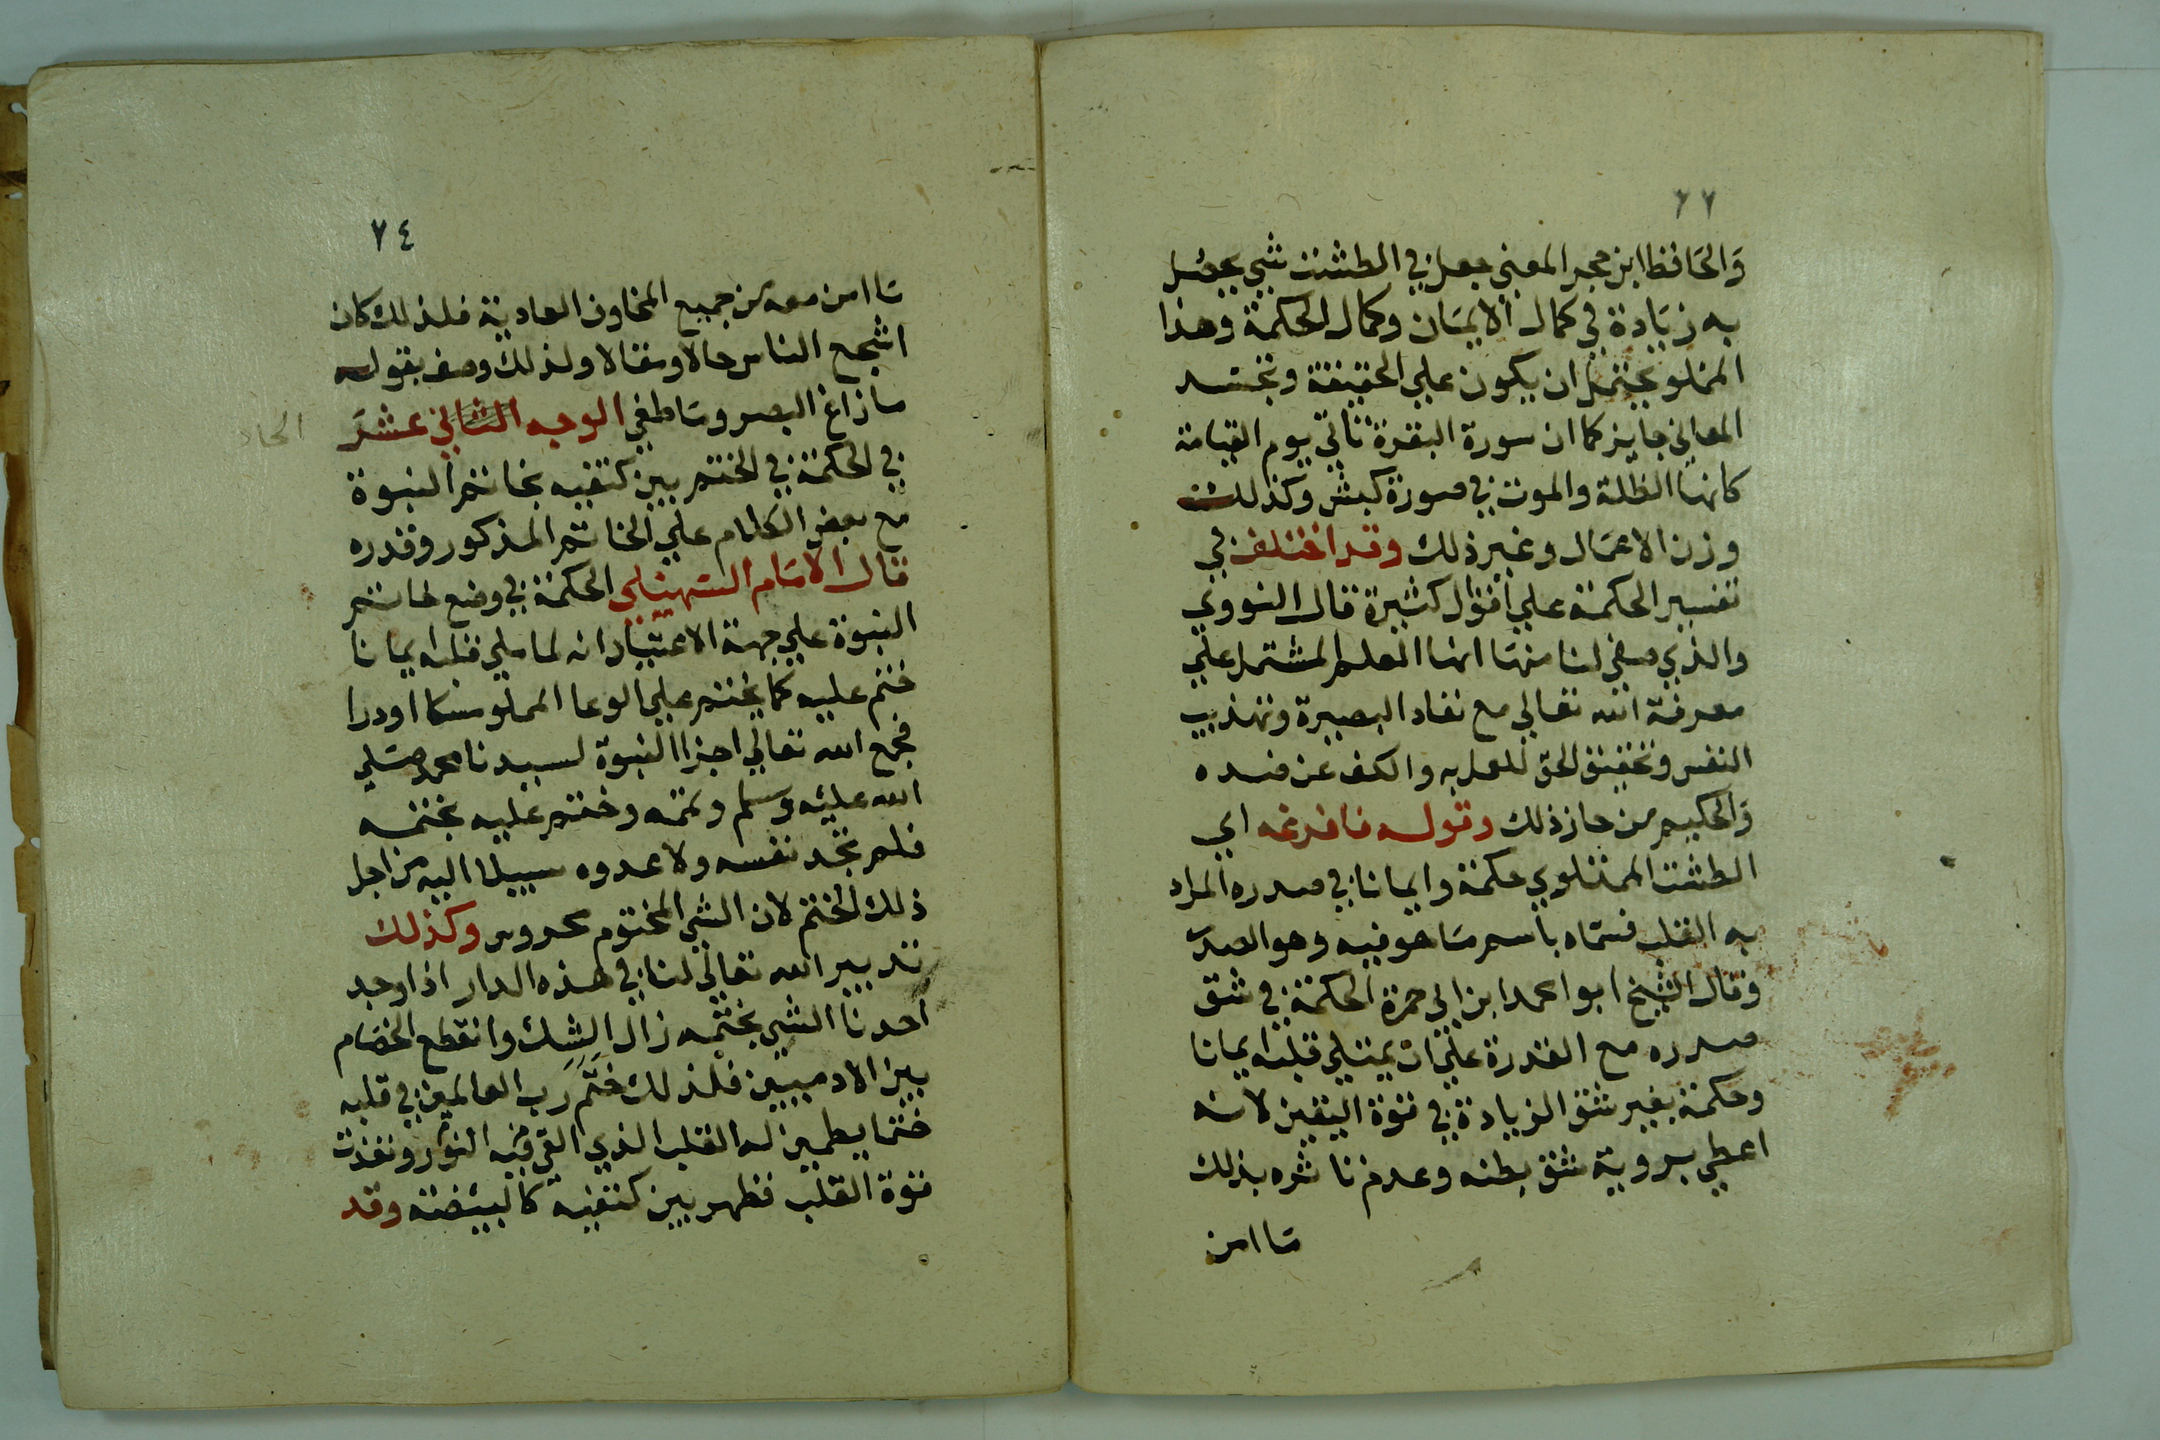 ٢٢
وَالحَافظ ابن حجر المعني جعل في الطشت شي يحصل
به زيَادة في كمال الايمَان وكمال الحكمة وهذا
المملو يحتمل ان يكون علي الحقيقة وتجسد
المعاني جايز كما ان سورة البقرة تاتي يوم القيامة
كانهَا الظلة والموت في صورة كبش وكذلك
وزن الاعمَال وغير ذلك وقد اختلف في
تفسير الحكمة علي اقوال كثيرة قال النووي
والذي صفي لنا منهَا انها العلم المشتمل علي
معرفة الله تعالي مع نفاد البصيرة وتهذيب
النفس وتحقيق الحق للعمل به والكف عن ضده
وَالحكيم من حاز ذلك وقوله فافرغه اي
الطشت الممتلوي حكمة وايمانا في صدره المراد
به القلب فسمّاه باسم مَا هو فيه وهو الصدر
وقال الشيخ ابو احمد ابن ابي حمزة الحكمة في شق
صدره مع القدرة علي ان يمتلي قلبه ايمانا
وحكمة بغير شق الزيادة في قوة اليقين لانه
اعطي بروية شق بطنه وعدم تاثره بذلك
مَا امن
٢٤
مَا امن معه من جميع المخاوف العادية فلذلك كان
اشجع الناس حالا ومقالا ولذلك وصف بقوله
ما زاغ البصر ومَا طغي الوجه الثاني عشر
الحاد
في الحكمة في الختم بين كتفيه بخاتم النبوة
مع بعض الكلام علي الخاتم المذكور وقدره
قال الامَام السهيلي الحكمة في وضع خاتم
النبوة علي جهة الاعتبار انه لما ملي قلبه ايمانا
ختم عليه كما يختم علي الوعا المملو مسكا او درا
فجمع الله تعالي اجزا النبوة لسيدنا محمد صَلي
الله عليْه وسلم وتممه وختم عليه بختمه
فلم تجد نفسه ولا عدوه سبيلا اليه من اجل
ذلك الختم لان الشي المختوم محروس وكذلك
تدبير الله تعالي لنا في هذه الدار اذا وجد
احدنا الشي بختمه زال الشك وانقطع الخصَام
بين الادميين فلذلك خَتَم رَب العالمين في قلبه
ختما يطمين له القلب الذي القي فيْه النوْر ونفذت
قوة القلب فظهر بين كتفيه كالبيْضة وقد